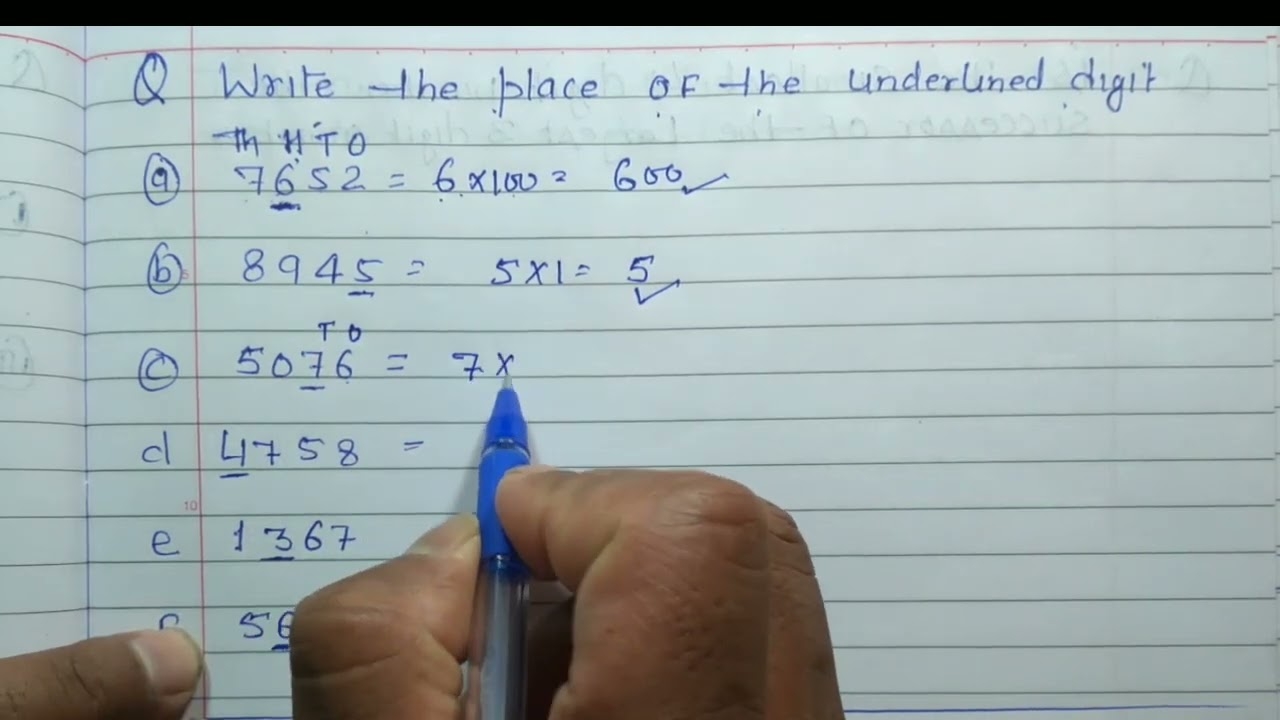 Q Write the place of the underlined digit
Th H T O
a 7652 = 6 × 100 = 600 ✓
b 8945 = 5 × 1 = 5 ✓
T O
c 5076 = 7 ×
d 4758 =
10
e 1367
56